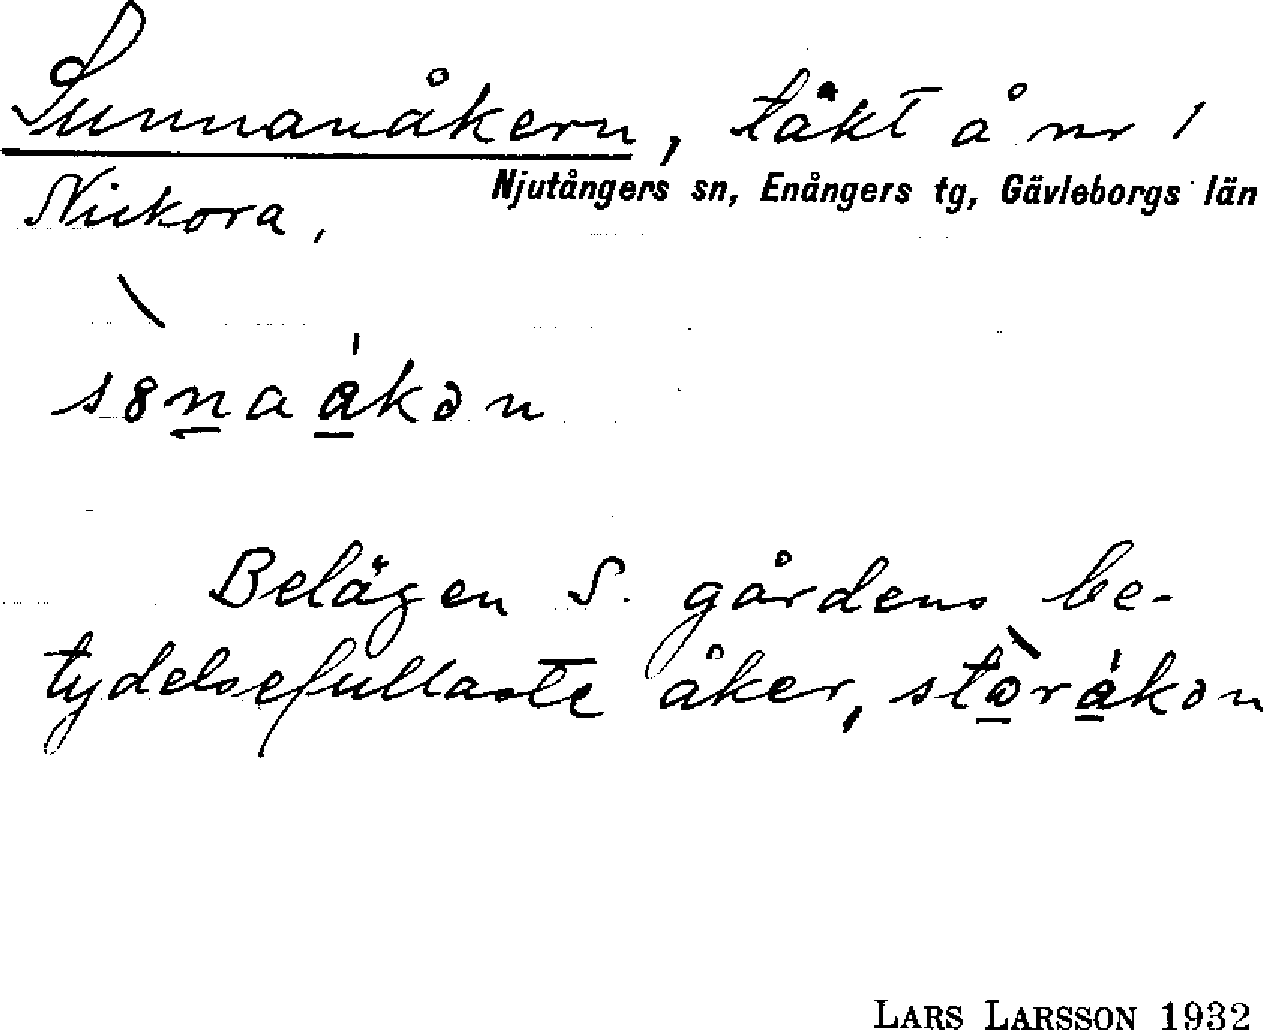 Sunnanåkern, täkt å nr 1
Njutångers sn, Enångers tg, Gävleborgs län
Nickora,
Belägen S. gårdens be-
tydelsefullaste åker,
LARS LARSSON 1932